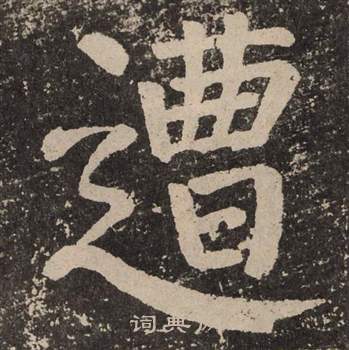 遭
词典